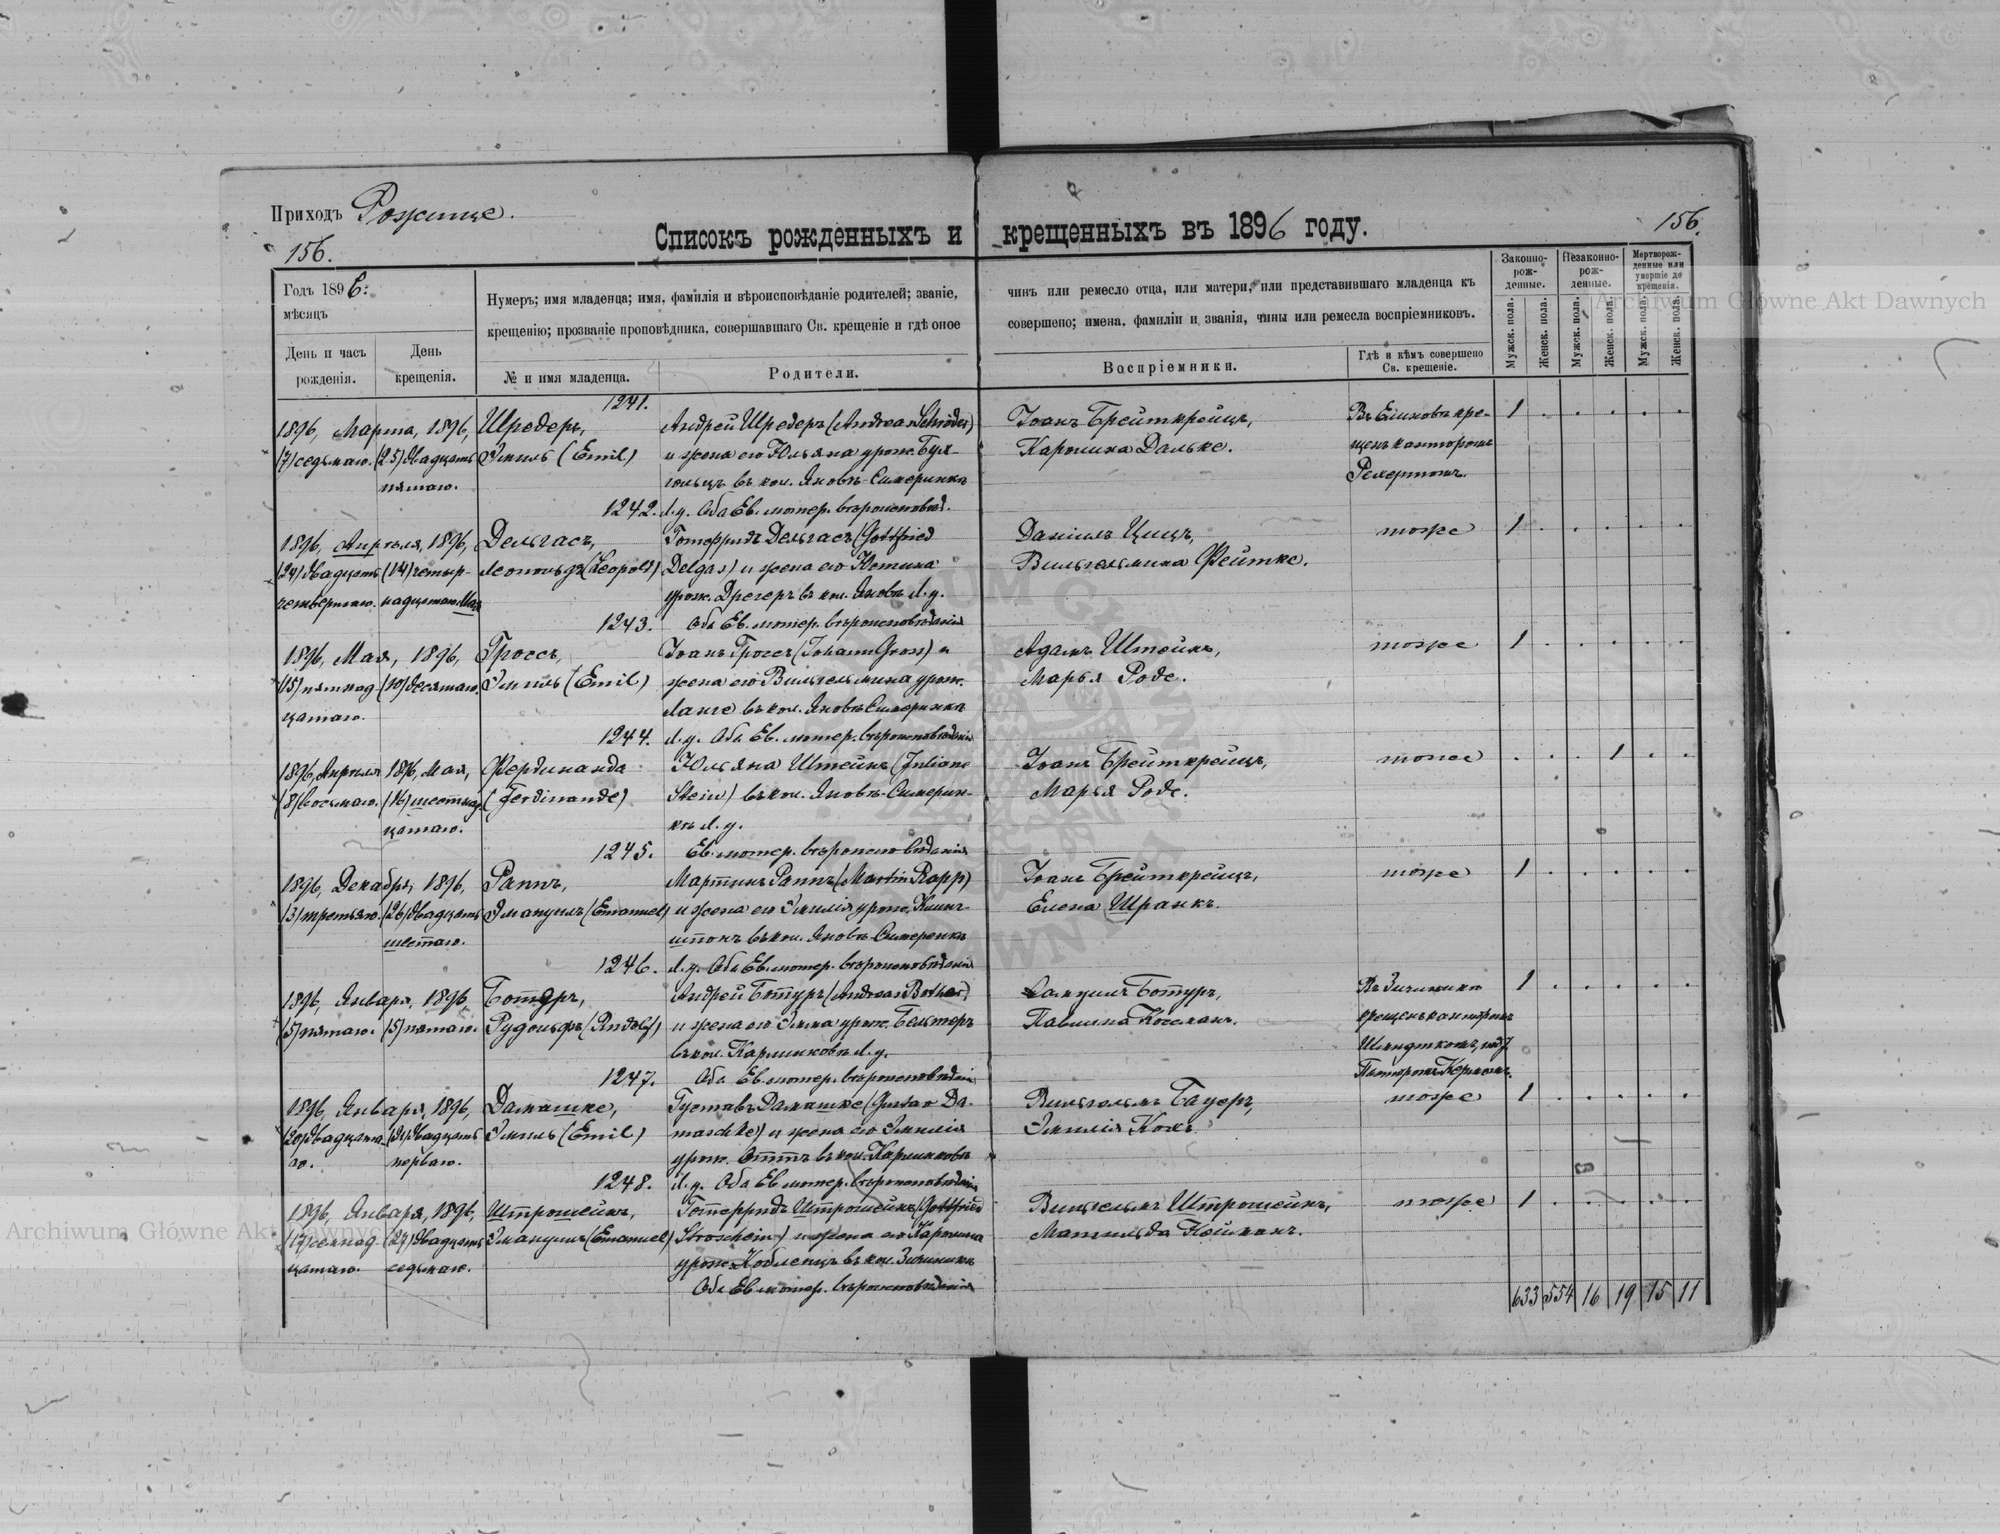 Приходъ Рожище.
156.
Списокъ рожденныхъ и крещенныхъ въ 1896 году.
156.
Годъ 1896.
мѣсяцъ
День и часъ рожденія.
День крещенія.
Нумеръ; имя младенца; имя, фамилія и вѣроисповѣданіе родителей; званіе,
крещенію; прозваніе проповѣдника, совершавшаго Св. крещеніе и гдѣ оное
№ и имя младенца.
Родители.
чинъ или ремесло отца, или матери, или представившаго младенца къ
совершено; имена, фамиліи и званія, чины или ремесла воспріемниковъ.
Воспріемники.
Гдѣ и кѣмъ совершено Св. крещеніе.
Законно-рож-денные.
Незаконно-рож-денные.
Мертворож-денные или умершіе до крещенія.
Мужск. пола.
Женск. пола.
Мужск. пола.
Женск. пола.
Мужск. пола.
Женск. пола.
1241.
1896, Марта, 1896, Шредеръ, Андрей Шредеръ (Andreas Schröder) Іоанъ Брейткрейцъ, 1
(7) седьмаго. (25) двадцать Эмиль (Emil) и жена его Юльяна урож. Каролина Дальке.
пятаго. въ кол. Яновъ
1242. Л.у. Оба Ев. лютер. вѣроисповѣд.
1896, Апрѣля, 1896, Дельгасъ, Готфридъ Дельгасъ (Gottfried Даніилъ Цицъ, тоже 1
(24) двадцать (14) четыр- Леопольдъ (Leopold) Delgas) и жена его Юстина Вильгельмина Фейтке.
четвертаго. надцатаго Мая урож. Дрегеръ въ кол. Яновъ Л.у.
1243. Оба Ев. лютер. вѣроисповѣданія
1896, Мая, 1896, Гроссъ, Іоанъ Гроссъ (Johann Gross) и Адамъ Штейнъ, тоже 1
(5) пятнад- (10) десятаго. Эмиль (Emil) жена его Вильгельмина урож. Марья Роде.
цатаго. Ланге въ кол. Яновъ
1244. Л.у. Оба Ев. лютер. вѣроисповѣданія
1896, Апрѣля 1896, Мая, Фердинанда Юльяна Штейнъ (Juliane Іоанъ Брейткрейцъ, тоже 1
(8) восьмаго. (16) шестнад- (Ferdinande) Stein) въ кол. Яновъ Марья Роде.
цатаго. Л.у.
1245. Ев. лютер. вѣроисповѣданія
1896, Декабря, 1896, Раппъ, Мартинъ Раппъ (Martin Rapp) Іоанъ Брейткрейцъ, тоже 1
(3) третьяго. (26) двадцать Эмануилъ (Emanuel) и жена его Эмилія урож. Елена Шранкъ.
шестаго. въ кол. Яновъ
1246. Л.у. Оба Ев. лютер. вѣроисповѣданія
1896, Января, 1896 Андрей (Andreas Самуилъ 1
(5) пятаго. (5) пятаго. Рудольфъ (Rudolf) и жена его Эмма урож. Павлина
въ кол. Л.у.
1247. Оба Ев. лютер. вѣроисповѣданія
1896, Января, 1896, Дамашке, Густавъ Дамашке (Gustav Da- Вильгельмъ Бауеръ, тоже 1
(20) двадцата- (21) двадцать Эмиль (Emil) maschke) и жена его Эмилія Эмилія
го. перваго. урож. въ кол.
1248. Л.у. Оба Ев. лютер. вѣроисповѣданія
1896, Января, 1896, Штрошейнъ, Готфридъ Штрошейнъ (Gottfried Вильгельмъ Штрошейнъ, тоже 1
(17) семнад- (27) двадцать Эмануилъ (Emanuel) Stroschein) и жена его Каролина Матильда Нейманъ.
цатаго. седьмаго. урож. Кобленцъ въ кол.
Оба Ев. лютер. вѣроисповѣданія
633 554 16 19 15 11
Archiwum Główne Akt Dawnych
Archiwum Główne Akt Dawnych